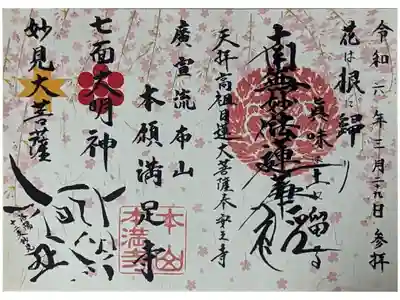 令和六年三月二九日参拝
花は根に歸り
真味は土に留まる
南無妙法蓮華経
天拝高祖日蓮大菩薩奉安之寺
廣宣流布山
本願満足寺
本山
本満寺
七面大明神
妙見大菩薩